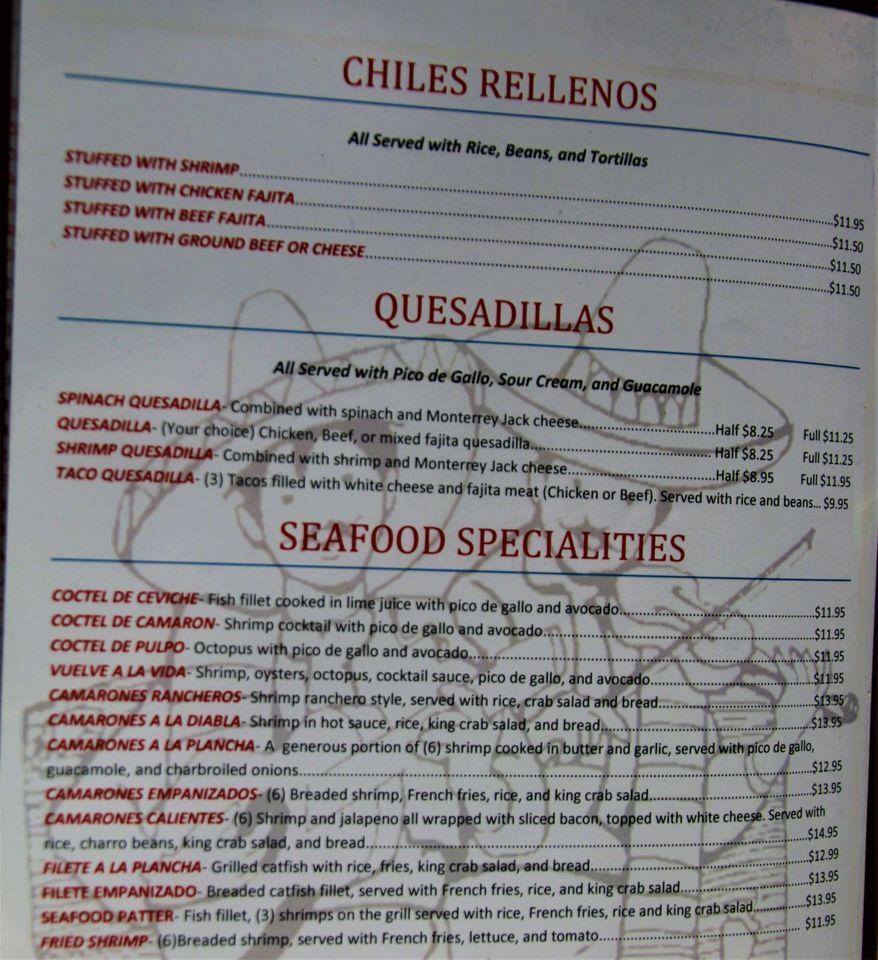 CHILES RELLENOS
All Served with Rice, Beans, and Tortillas
STUFFED WITH SHRIMP...$11.95
STUFFED WITH CHICKEN FAJITA...$11.50
STUFFED WITH BEEF FAJITA...$11.50
STUFFED WITH GROUND BEEF OR CHEESE...$11.50
QUESADILLAS
All Served with Pico de Gallo, Sour Cream, and Guacamole
SPINACH QUESADILLA- Combined with spinach and Monterrey Jack cheese...Half $8.25 Full $11.25
QUESADILLA- (Your choice) Chicken, Beef, or mixed fajita quesadilla...Half $8.25 Full $11.25
SHRIMP QUESADILLA- Combined with shrimp and Monterrey Jack cheese...Half $8.95 Full $11.95
TACO QUESADILLA- (3) Tacos filled with white cheese and fajita meat (Chicken or Beef). Served with rice and beans... $9.95
SEAFOOD SPECIALITIES
COCTEL DE CEVICHE- Fish fillet cooked in lime juice with pico de gallo and avocado...$11.95
COCTEL DE CAMARON- Shrimp cocktail with pico de gallo and avocado...$11.95
COCTEL DE PULPO- Octopus with pico de gallo and avocado...$11.95
VUELVE A LA VIDA- Shrimp, oysters, octopus, cocktail sauce, pico de gallo, and avocado...$11.95
CAMARONES RANCHEROS- Shrimp ranchero style, served with rice, crab salad and bread...$13.95
CAMARONES A LA DIABLA- Shrimp in hot sauce, rice, king crab salad, and bread...$13.95
CAMARONES A LA PLANCHA- A generous portion of (6) shrimp cooked in butter and garlic, served with pico de gallo,
guacamole, and charbroiled onions...$12.95
CAMARONES EMPANIZADOS- (6) Breaded shrimp, French fries, rice, and king crab salad...$13.95
CAMARONES CALIENTES- (6) Shrimp and jalapeno all wrapped with sliced bacon, topped with white cheese. Served with
rice, charro beans, king crab salad, and bread...$14.95
FILETE A LA PLANCHA- Grilled catfish with rice, fries, king crab salad, and bread...$12.99
FILETE EMPANIZADO- Breaded catfish fillet, served with French fries, rice, and king crab salad...$13.95
SEAFOOD PATTER- Fish fillet, (3) shrimps on the grill served with rice, French fries, rice and king crab salad...$13.95
FRIED SHRIMP- (6)Breaded shrimp, served with French fries, lettuce, and tomato...$11.95